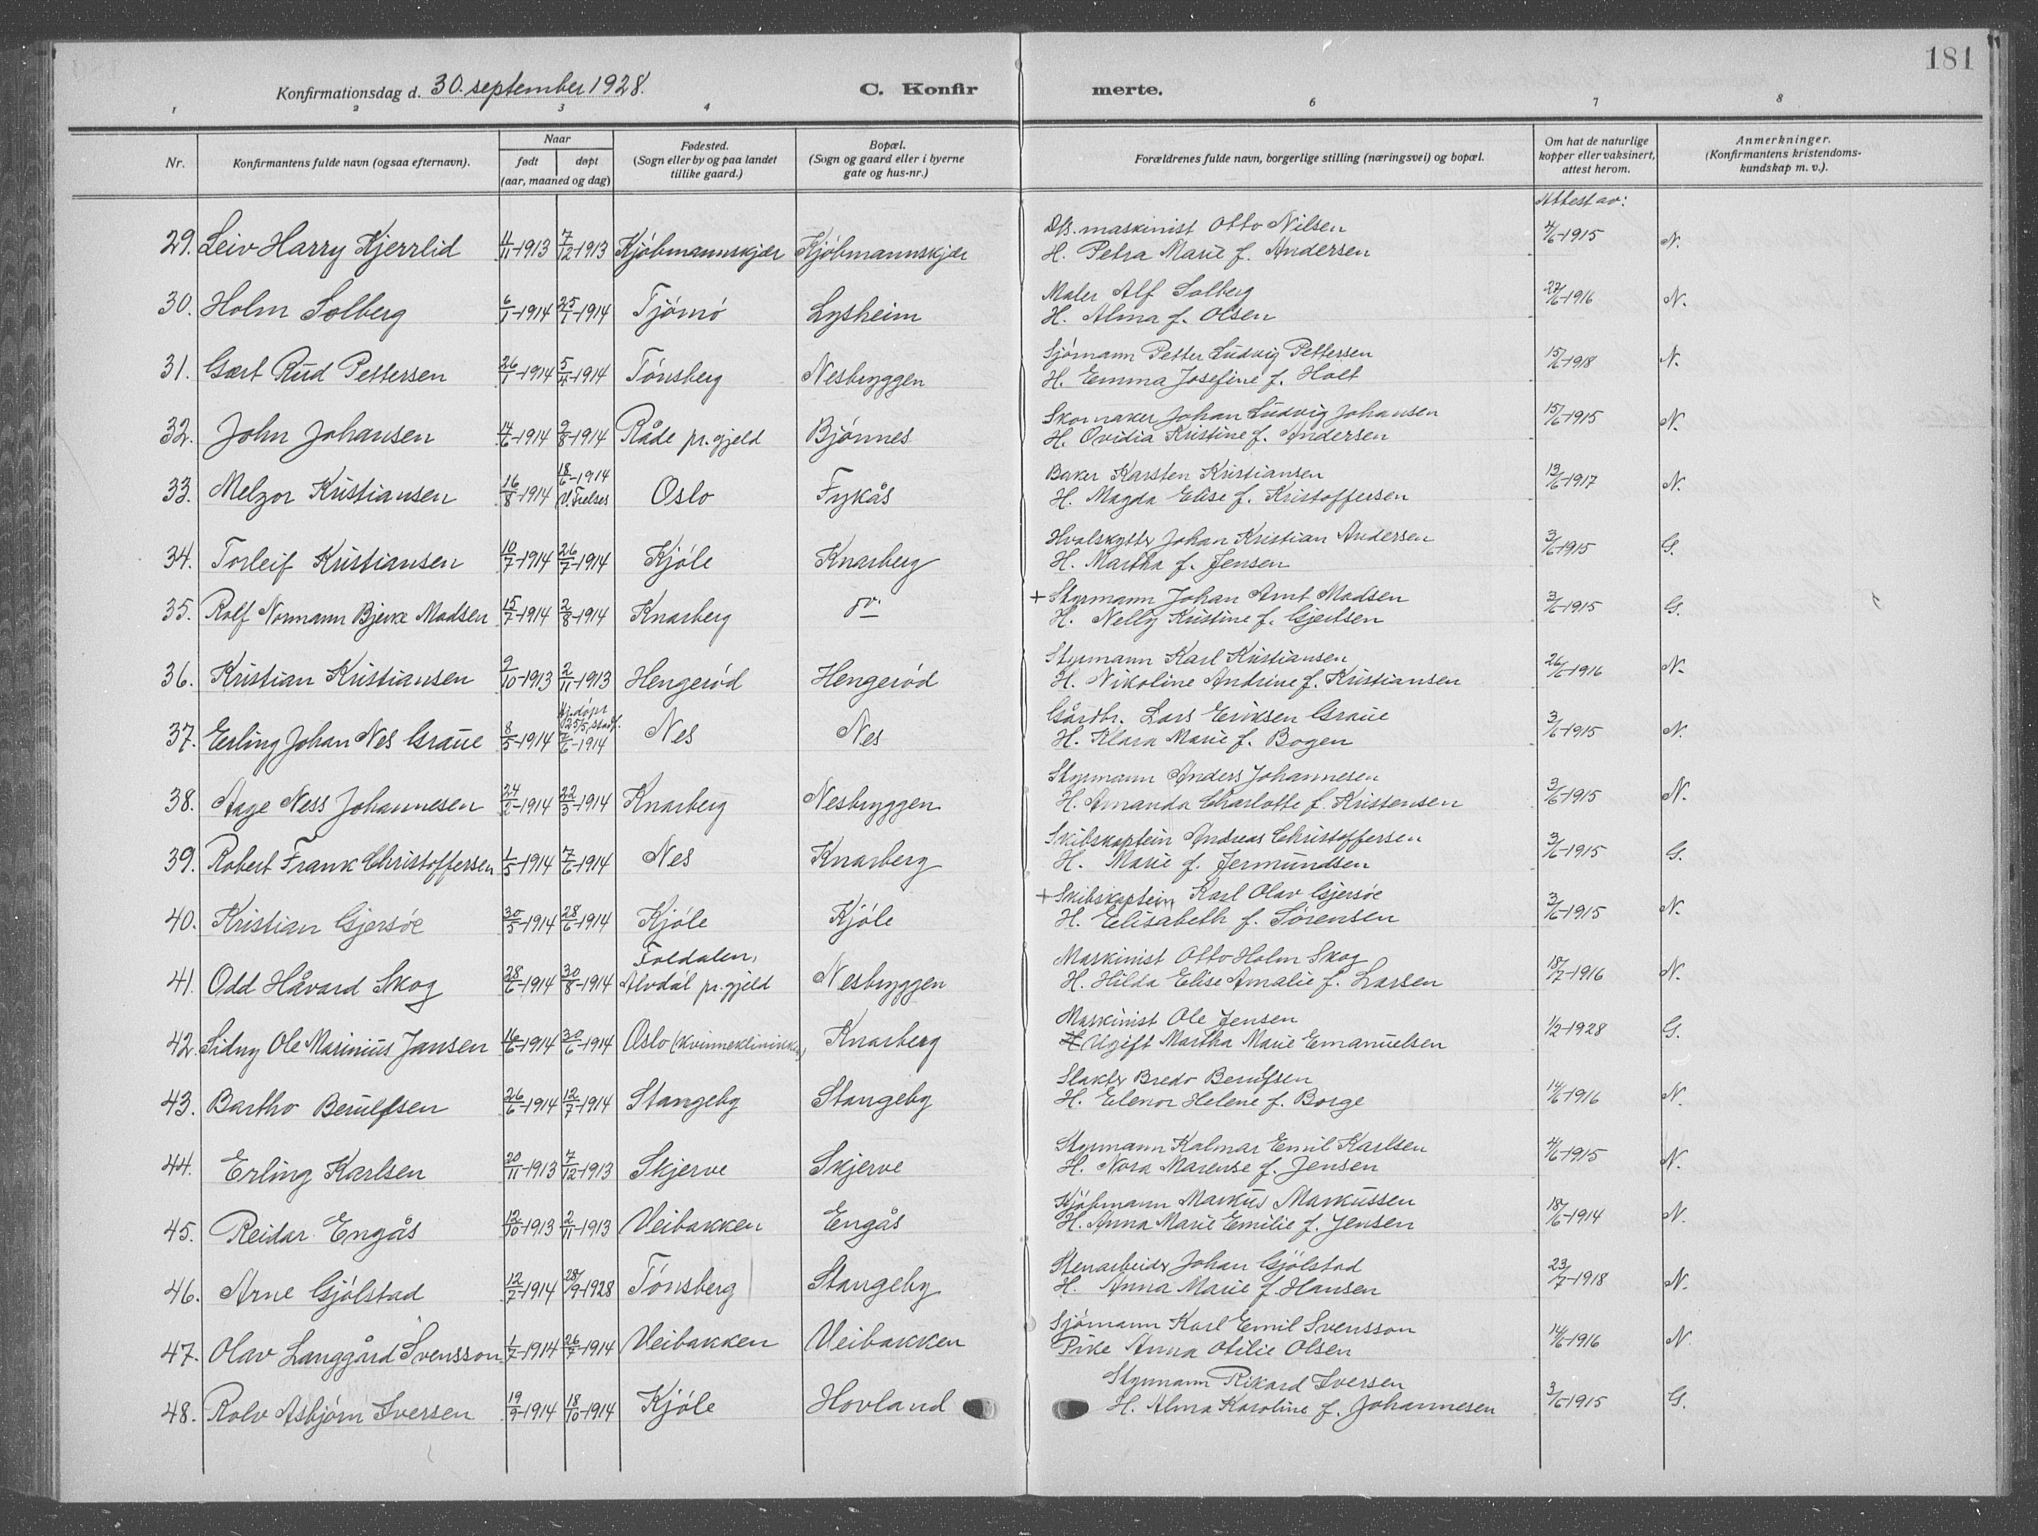 181
Konfirmationsdag d. 30. september 1928. C. Konfir merte.
1 2 3 4 6 7 8
Nr. Konfirmantens fulde navn (ogsaa efternavn). Naar født døpt (aar, maaned og dag) Fødested. (Sogn eller by og paa landet tillike gaard.) Bopæl. (Sogn og gaard eller i byerne gate og hus-nr.) Forældrenes fulde navn, borgerlige stilling (næringsvei) og bopæl. Om hat de naturlige kopper eller vaksinert, attest herom. Anmerkninger. (Konfirmantens kristendoms-kundskap m. v.).
Attest av:
29. Leiv Harry Kjerrlid 4/11-1913 7/12-1913 Kjøbmannskjær Kjøbmannskjær Ds. maskinist Otto Nilsen 4/6-1915 N.
H. Petra Marie f. Andersen
30. Holm Solberg 6/1-1914 25/1-1914 Tjømø Lysheim Maler Alf Solberg 27/6-1916 N.
H. Alma f. Olsen
31. Gært Rud Pettersen 26/1-1914 5/4-1914 Tønsberg Nesbryggen Sjømann Petter Ludvig Pettersen 15/6-1918 N.
H. Emma Josefine f. Holt
32. John Johansen 14/6-1914 9/8-1914 Råde pr.gjeld Bjønnes Skomaker Johan Ludvig Johansen 15/6-1915 N.
H. Ovidia Kristine f. Andersen
33. Melzor Kristiansen 16/8-1914 18/6-1914 Oslo Fykås Baker Karsten Kristiansen 13/6-1917 N.
H. Magda Elise f. Kristoffersen
34. Torleif Kristiansen 10/7-1914 26/7-1914 Kjøle Knarberg Hvalskytter Johan Kristian Andersen 3/6-1915 G.
H. Martha f. Jensen
35. Rolf Normann Bjerke Madsen 15/7-1914 2/8-1914 Knarberg do. + Styrmann Johan Arnt Madsen 3/6-1915 G.
H. Nelly Kristine f. Gjertsen
36. Kristian Kristiansen 9/10-1913 2/11-1913 Hengerød Hengerød Styrmann Karl Kristiansen 26/6-1916 N.
H. Nikoline Andrine f. Kristiansen
37. Erling Johan Nes Graue 8/5-1914 Hj.døpt 25/5, stadf. 7/6-1914 Nes Nes Gårdbr. Lars Eriksen Graue 3/6-1915 N.
H. Klara Marie f. Bogen
38. Aage Ness Johannesen 24/2-1914 22/3-1914 Knarberg Nesbryggen Styrmann Anders Johannesen 3/6-1915 N.
H. Amanda Charlotte f. Kristensen
39. Robert Frank Christoffersen 1/5-1914 7/6-1914 Nes Knarberg Skibskaptein Andreas Christoffersen 3/6-1915 G.
H. Marie f. Jermundsen
40. Kristian Gjersøe 30/5-1914 28/6-1914 Kjøle Kjøle + Skibskaptein Karl Olav Gjersøe 3/6-1915 N.
H. Elisabeth f. Sørensen
41. Odd Håvard Skog 28/6-1914 30/8-1914 Foldalen, Alvdal pr.gjeld Nesbryggen Maskinist Otto Holm Skog 18/7-1916 N.
H. Hilda Elise Amalie f. Larsen
42. Sidny Ole Marinius Jansen 16/6-1914 30/6-1914 Oslo (Kvinneklinikken) Knarberg Maskinist Ole Jensen 1/2-1928 G.
Ugift Martha Marie Emanuelsen
43. Bartho Berulfsen 26/6-1914 12/7-1914 Stangeby Stangeby Slakter Bredo Berulfsen 14/6-1916 N.
H. Elenor Helene f. Borge
44. Erling Karlsen 20/11-1913 7/12-1913 Skjerve Skjerve Styrmann Kalmar Emil Karlsen 4/6-1915 N.
H. Nora Marense f. Jensen
45. Reidar Engås 12/10-1913 2/11-1913 Veibakken Engås Kjøbmann Markus Markussen 18/6-1914 N.
H. Anna Marie Emilie f. Jensen
46. Arne Gjølstad 12/7-1914 28/9-1928 Tønsberg Stangeby Stenarbeider Johan Gjølstad 23/7-1918 N.
H. Anna Marie f. Hansen
47. Olav Langgård Svensson 1/7-1914 26/7-1914 Veibakken Veibakken Sjømann Karl Emil Svensson 14/6-1916 N.
Pike Anna Otilie Olsen
48. Rolv Asbjørn Iversen 19/9-1914 18/10-1914 Kjøle Hovland Styrmann Rikard Iversen 3/6-1915 G.
H. Alma Karoline f. Johannesen